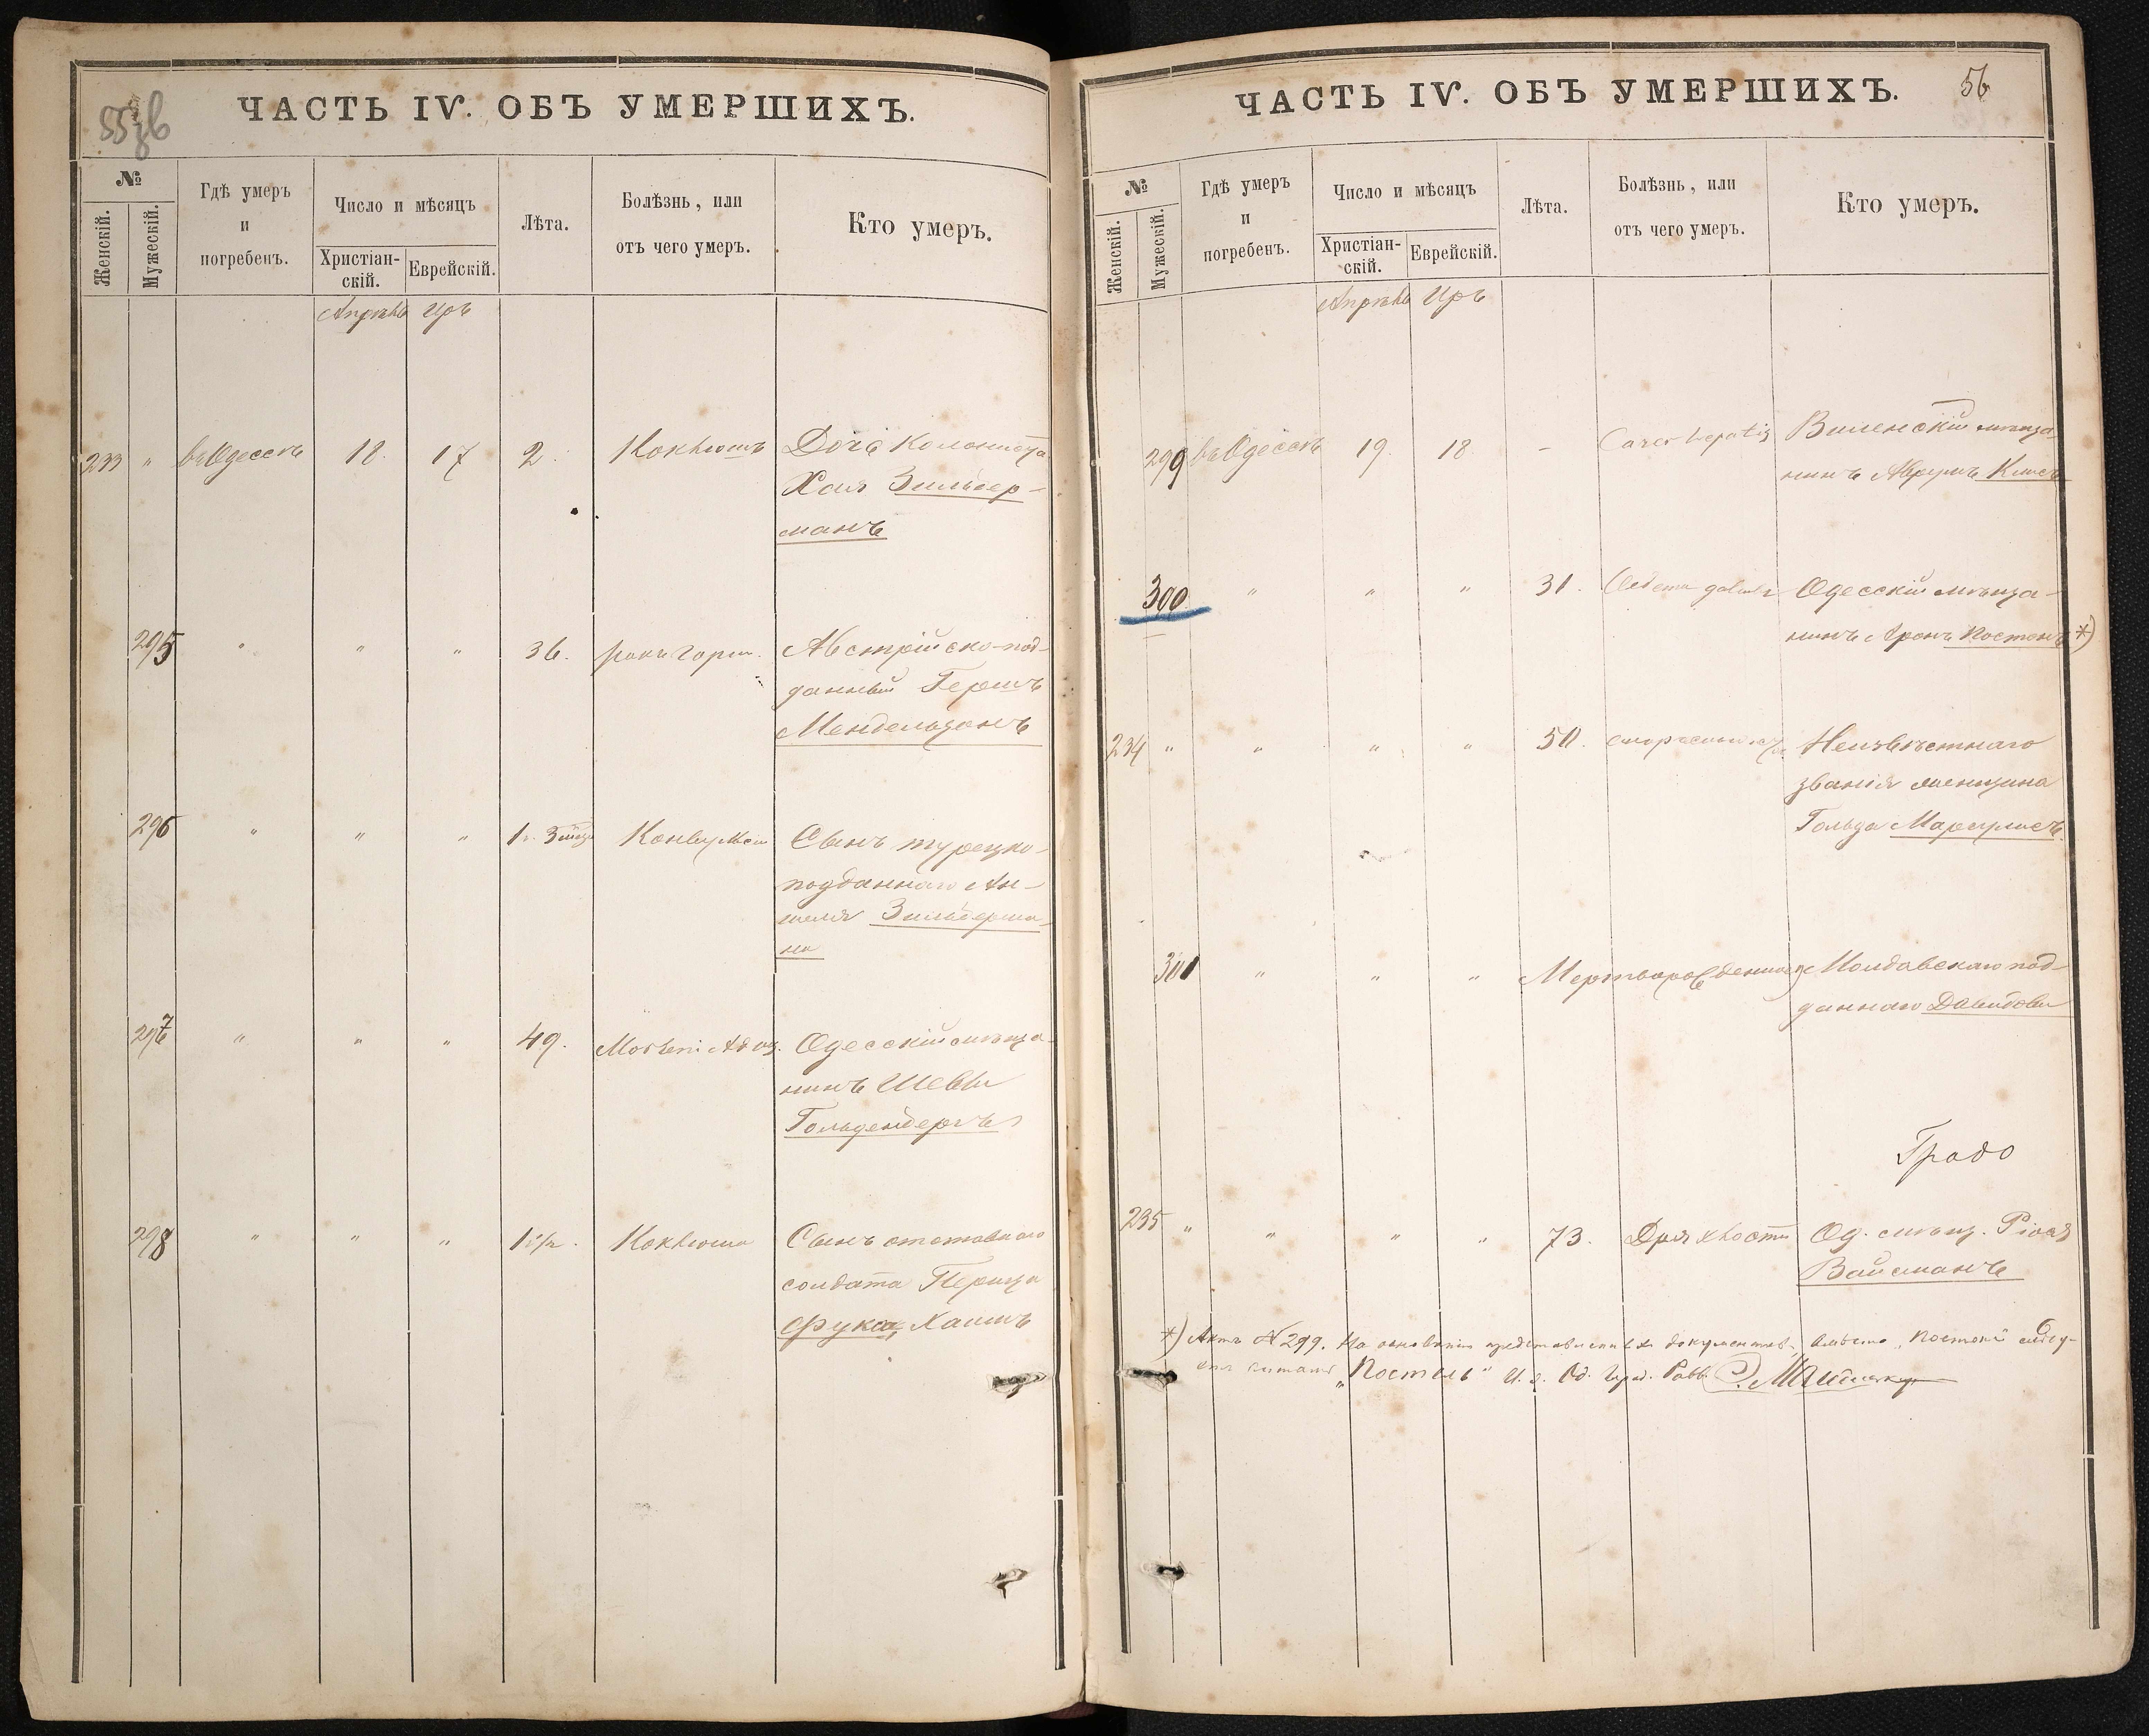 55 зв
ЧАСТЬ IV. ОБЪ УМЕРШИХЪ.
№
Женскій.
Мужескій.
Гдѣ умеръ
и
погребенъ.
Число и мѣсяцъ
Христіан-
скій.
Еврейскій.
Лѣта.
Болѣзнь, или
отъ чего умеръ.
Кто умеръ.
Апрѣль Иръ
233 " въ Одессѣ 18. 17 2. Коклюшъ Дочь колониста
Хая Зильбер-
манъ
295 " " " 36. ракъ горт. Австрійско-под-
данный Гершъ
Мендельзонъ
296 " " " 1 г. 3 Конвульсіи Сынъ турецко-
подданнаго Ан-
шеля Зильберма-
на
297 " " " 49. Одесскій мѣща-
нинъ
Гольденбергъ
298 " " " 1 1/2. Коклюша Сынъ отставнаго
солдата Перица
Фукса, Хаимъ
56
ЧАСТЬ IV. ОБЪ УМЕРШИХЪ.
№
Женскій.
Мужескій.
Гдѣ умеръ
и
погребенъ.
Число и мѣсяцъ
Христіан-
скій.
Еврейскій.
Лѣта.
Болѣзнь, или
отъ чего умеръ.
Кто умеръ.
Апрѣль Иръ
299 въ Одессѣ 19. 18 - hepatis Виленскій мѣща-
нинъ
300 " " " 31. Одесскій мѣща-
нинъ Аронъ Постонъ *)
234 " " " " 50. Неизвѣстнаго
званія женщина
Гольда Маргулисъ
301 " " " Мертворожденный Молдавскаго под-
даннаго
235 " " " " 73. Дряхлости Од. мѣщ.
Вайсманъ
*) Актъ № 299. На основаніи представленныхъ документовъ, вмѣсто „Постонъ" слѣду-
етъ читать „Постель" И. д. Од. Гор. Равв.